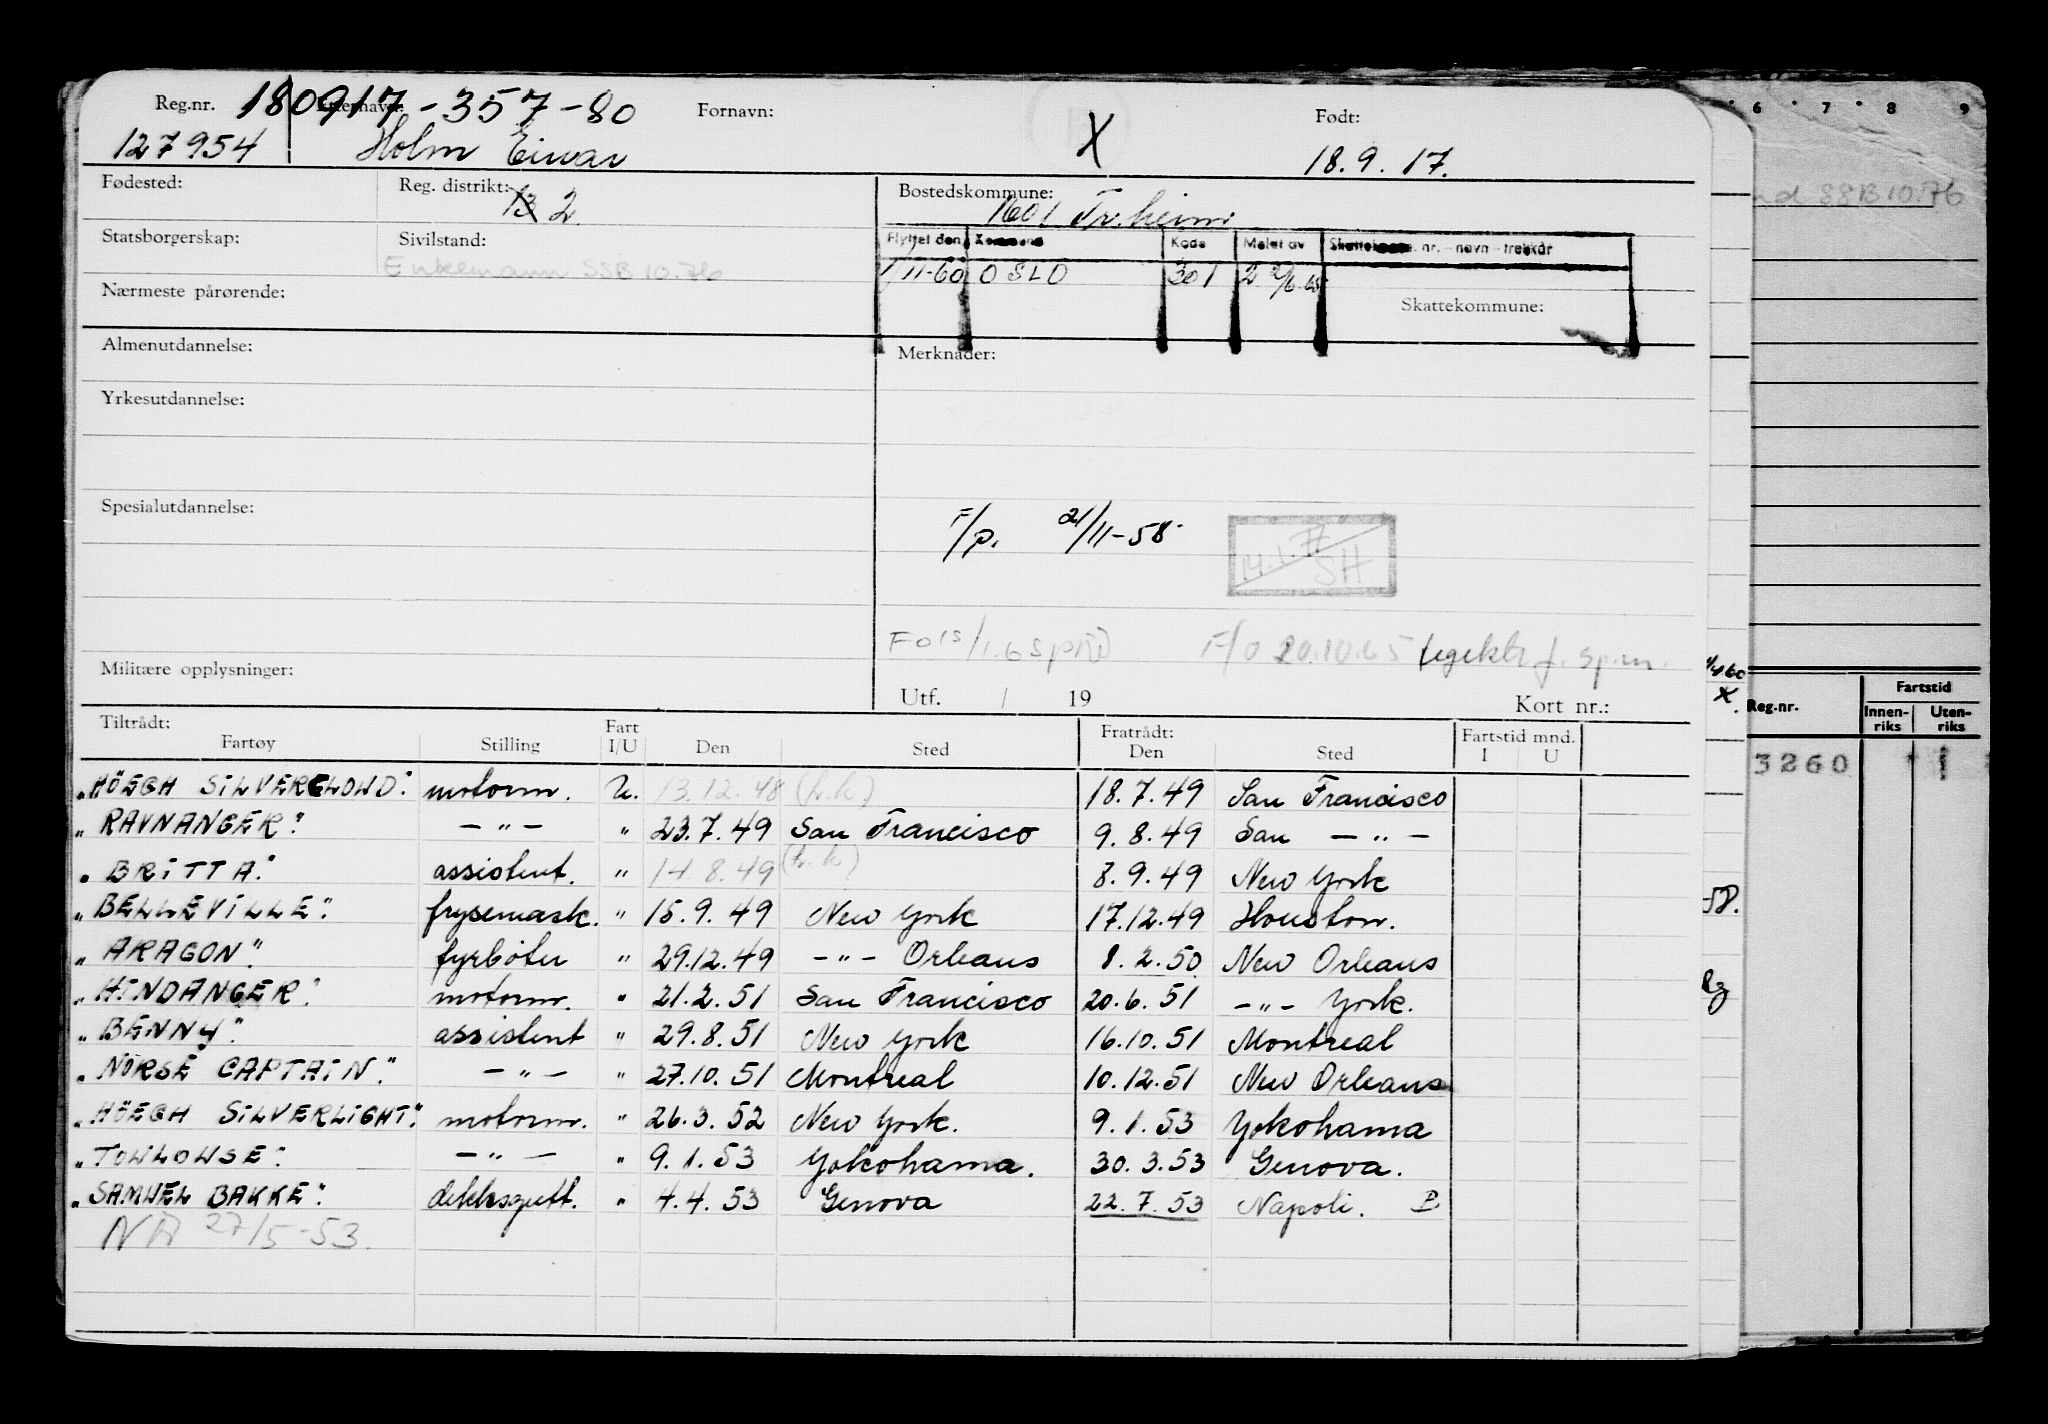 Reg.nr. 180917-357-80 Etternavn: Fornavn: X Født:
127954 Holm Eivar 18.9.17.
Fødested: Reg. distrikt: 13 2. Bostedskommune: 1601 Tr.heim.
Statsborgerskap: Sivilstand: Flyttet den Kommune Kode Meldt av Skattekomm. nr. - navn - trekkår
Enkemann SSB 10.76 1/11-60 OSLO 301 2 2/6.65
Nærmeste pårørende: Skattekommune:
Almenutdannelse: Merknader:
Yrkesutdannelse:
Spesialutdannelse: F/p. 21/11-58
14.1.77 SH
F/o 20.10.65 legektr f. sp.m.
Militære opplysninger:
Utf. / 19 Kort nr.:
Tiltrådt: Fartøy Stilling Fart I/U Den Sted Fratrådt: Den Sted Fartstid mnd. I U
"HÖEGH SILVERCLOWD" motorm. U. 13.12.48 (h.k) 18.7.49 San Francisco
"RAVNANGER" — " — " 23.7.49 San Francisco 9.8.49 San — " —
"BRITTA" assistent. " 14.8.49 (h.k) 8.9.49 New York
"BELLEVILLE" frysemask. " 15.9.49 New York 17.12.49 Houston.
"ARAGON" fyrböter " 29.12.49 — " — Orleans 8.2.50 New Orleans
"HINDANGER" motorm. " 21.2.51 San Francisco 20.6.51 — " — York.
"BENNY" assistent " 29.8.51 New York 16.10.51 Montreal
"NORSE CAPTAIN" — " — " 27.10.51 Montreal 10.12.51 New Orleans
"HÖEGH SILVERLIGHT" motorm. " 26.3.52 New York. 9.1.53 Yokohama
"TOWLOWSE" — " — " 9.1.53 Yokohama. 30.3.53 Genova.
"SAMWEL BAKKE" dekksgutt. " 4.4.53 Genova 22.7.53 Napoli. P.
NA 27/5-53.
6 7 8 9
SSB 10.76
X
58.
Reg.nr. Fartstid
Innen-riks Uten-riks
3260 1